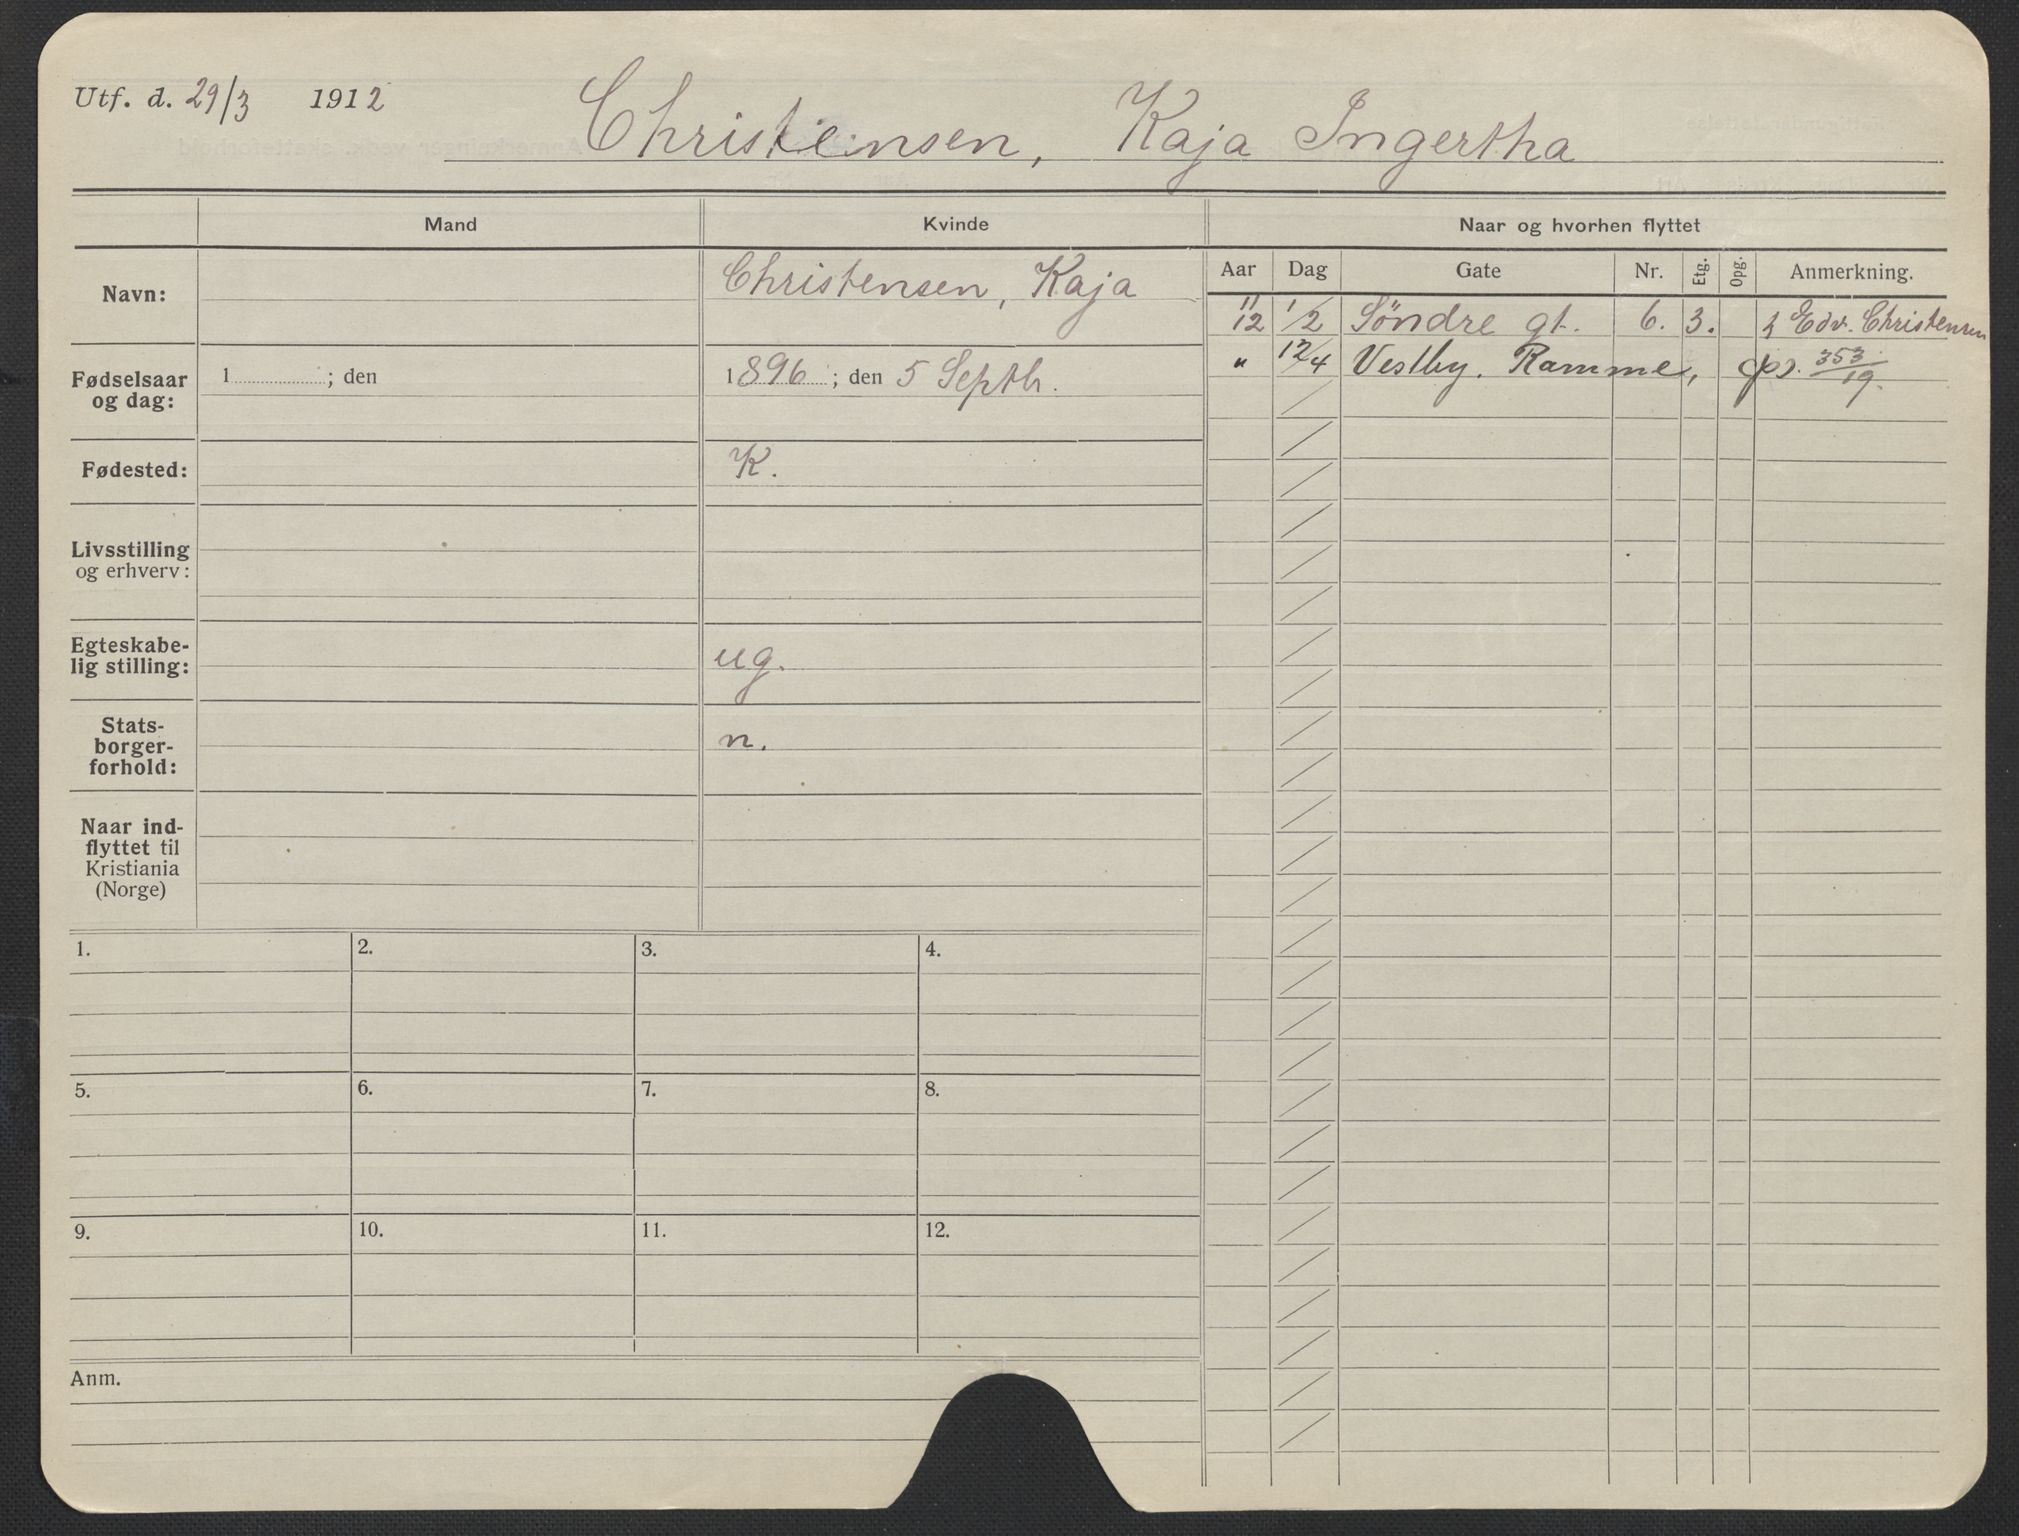 Utf. d. 29/3 1912
Christensen, Kaja Ingertha
Mand
Kvinde
Naar og hvorhen flyttet
Navn:
Christensen, Kaja
Aar Dag Gate Nr. Etg. Opg. Anmerkning.
11
12 1/2 Söndre gt. 6. 3. h Edv. Christensen
" 12/4 Vestby. Ramme, 353/19.
Fødselsaar
og dag:
1 ; den
1896 ; den 5 Septbr.
Fødested:
K.
Livsstilling
og erhverv:
Egteskabe-
lig stilling:
ug.
Stats-
borger-
forhold:
n.
Naar ind-
flyttet til
Kristiania
(Norge)
1. 2. 3. 4.
5. 6. 7. 8.
9. 10. 11. 12.
Anm.